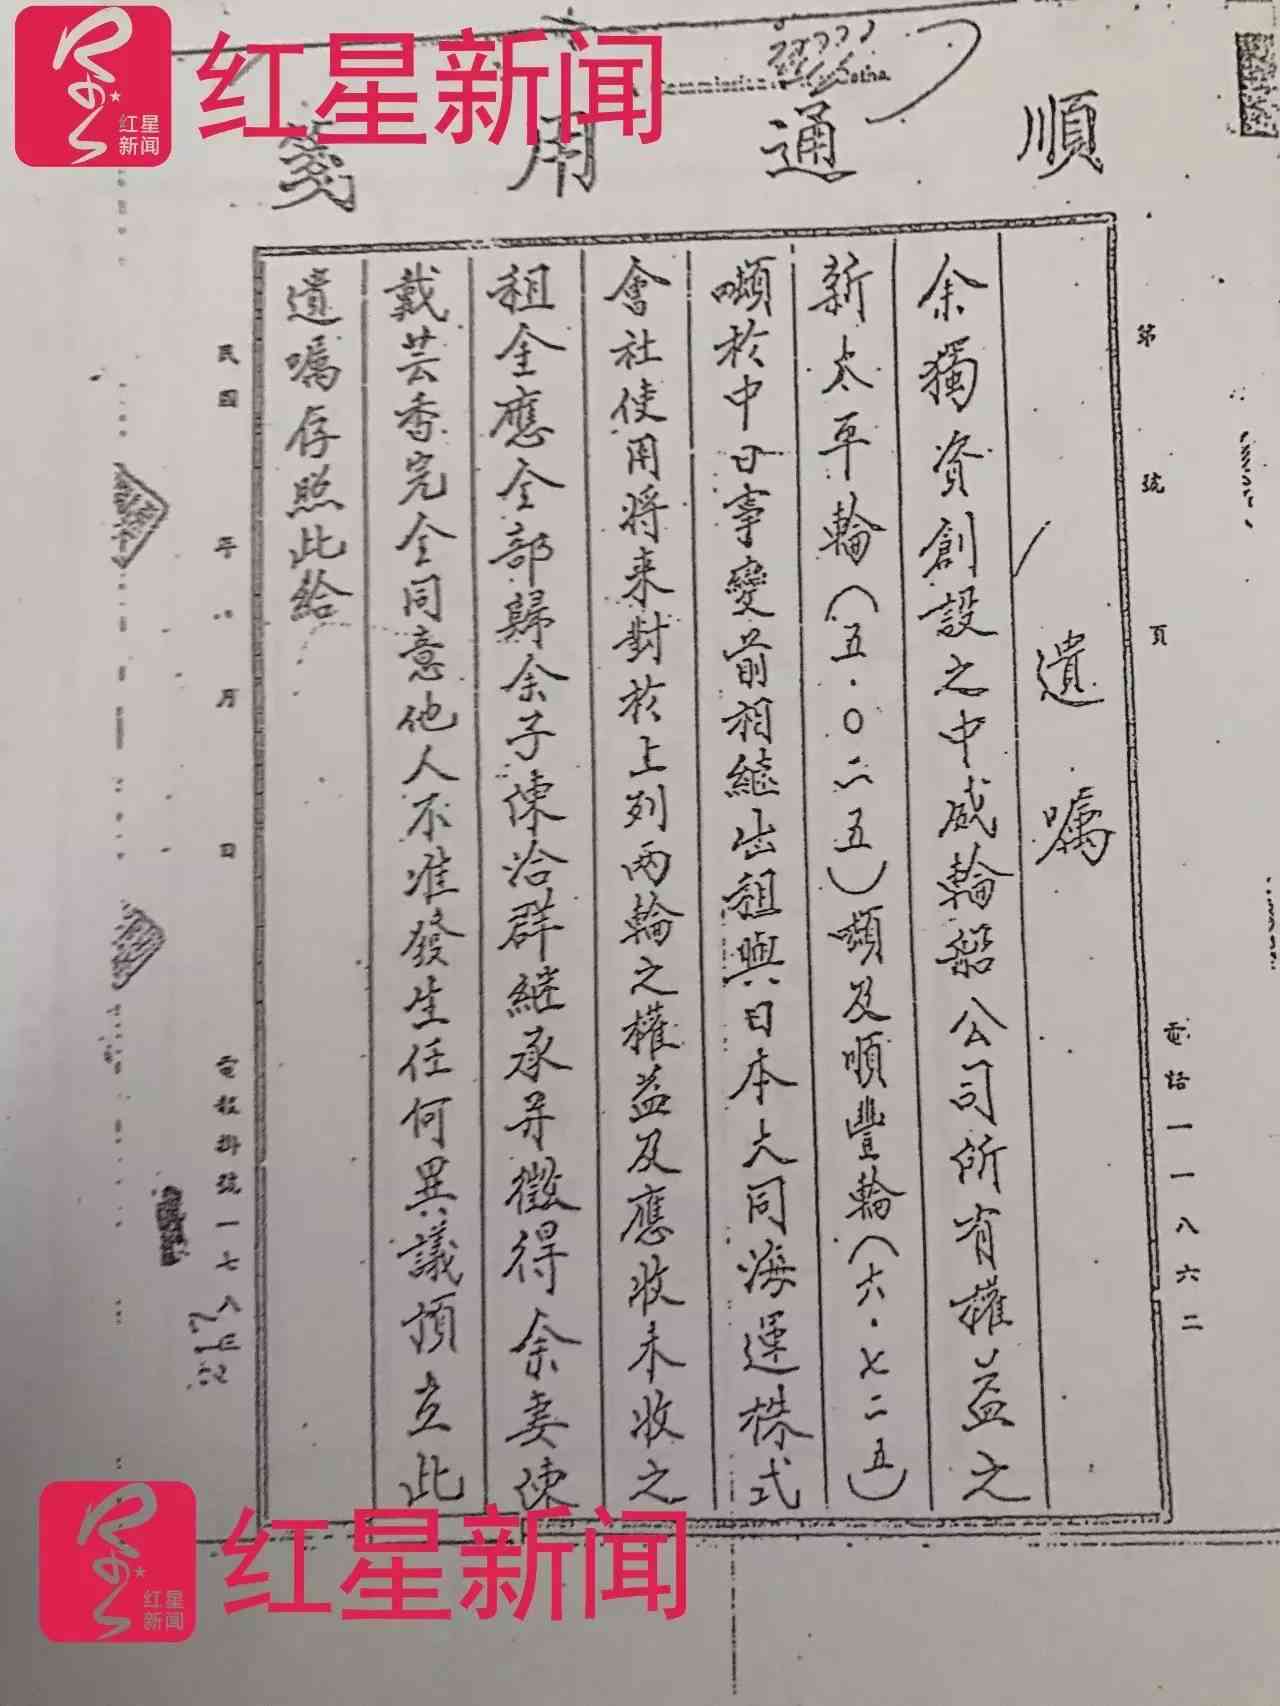 红星新闻
红星
新闻
順通用箋
第 號 頁
電話一一八六二
遺囑
余獨資創設之中威輪船公司所有權益之
新太平輪（五·〇二五）噸及順豐輪（六·七二五）
噸於中日事變前相繼出租與日本大同海運株式
會社使用將来對於上列兩輪之權益及應收未收之
租金應全部歸余子陳洽群継承并徵得余妻陳
戴芸香完全同意他人不准發生任何異議須立此
遺囑存照此給
民國 年 月 日
電報掛號一七八
红星新闻
红星
新闻